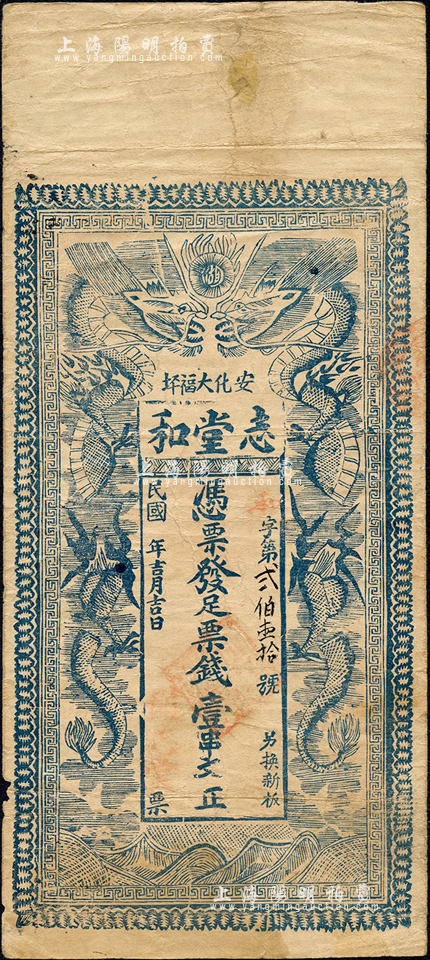 上海陽明拍賣
www.yangmingauction.com
安化大福坪
志堂和
字第弍伯壹拾號
另換新板
憑票發足票錢壹串文正
民國 年吉月吉日
票
上海陽明拍賣
www.yangmingauction.com
上海陽明拍賣
www.yangmingauction.com